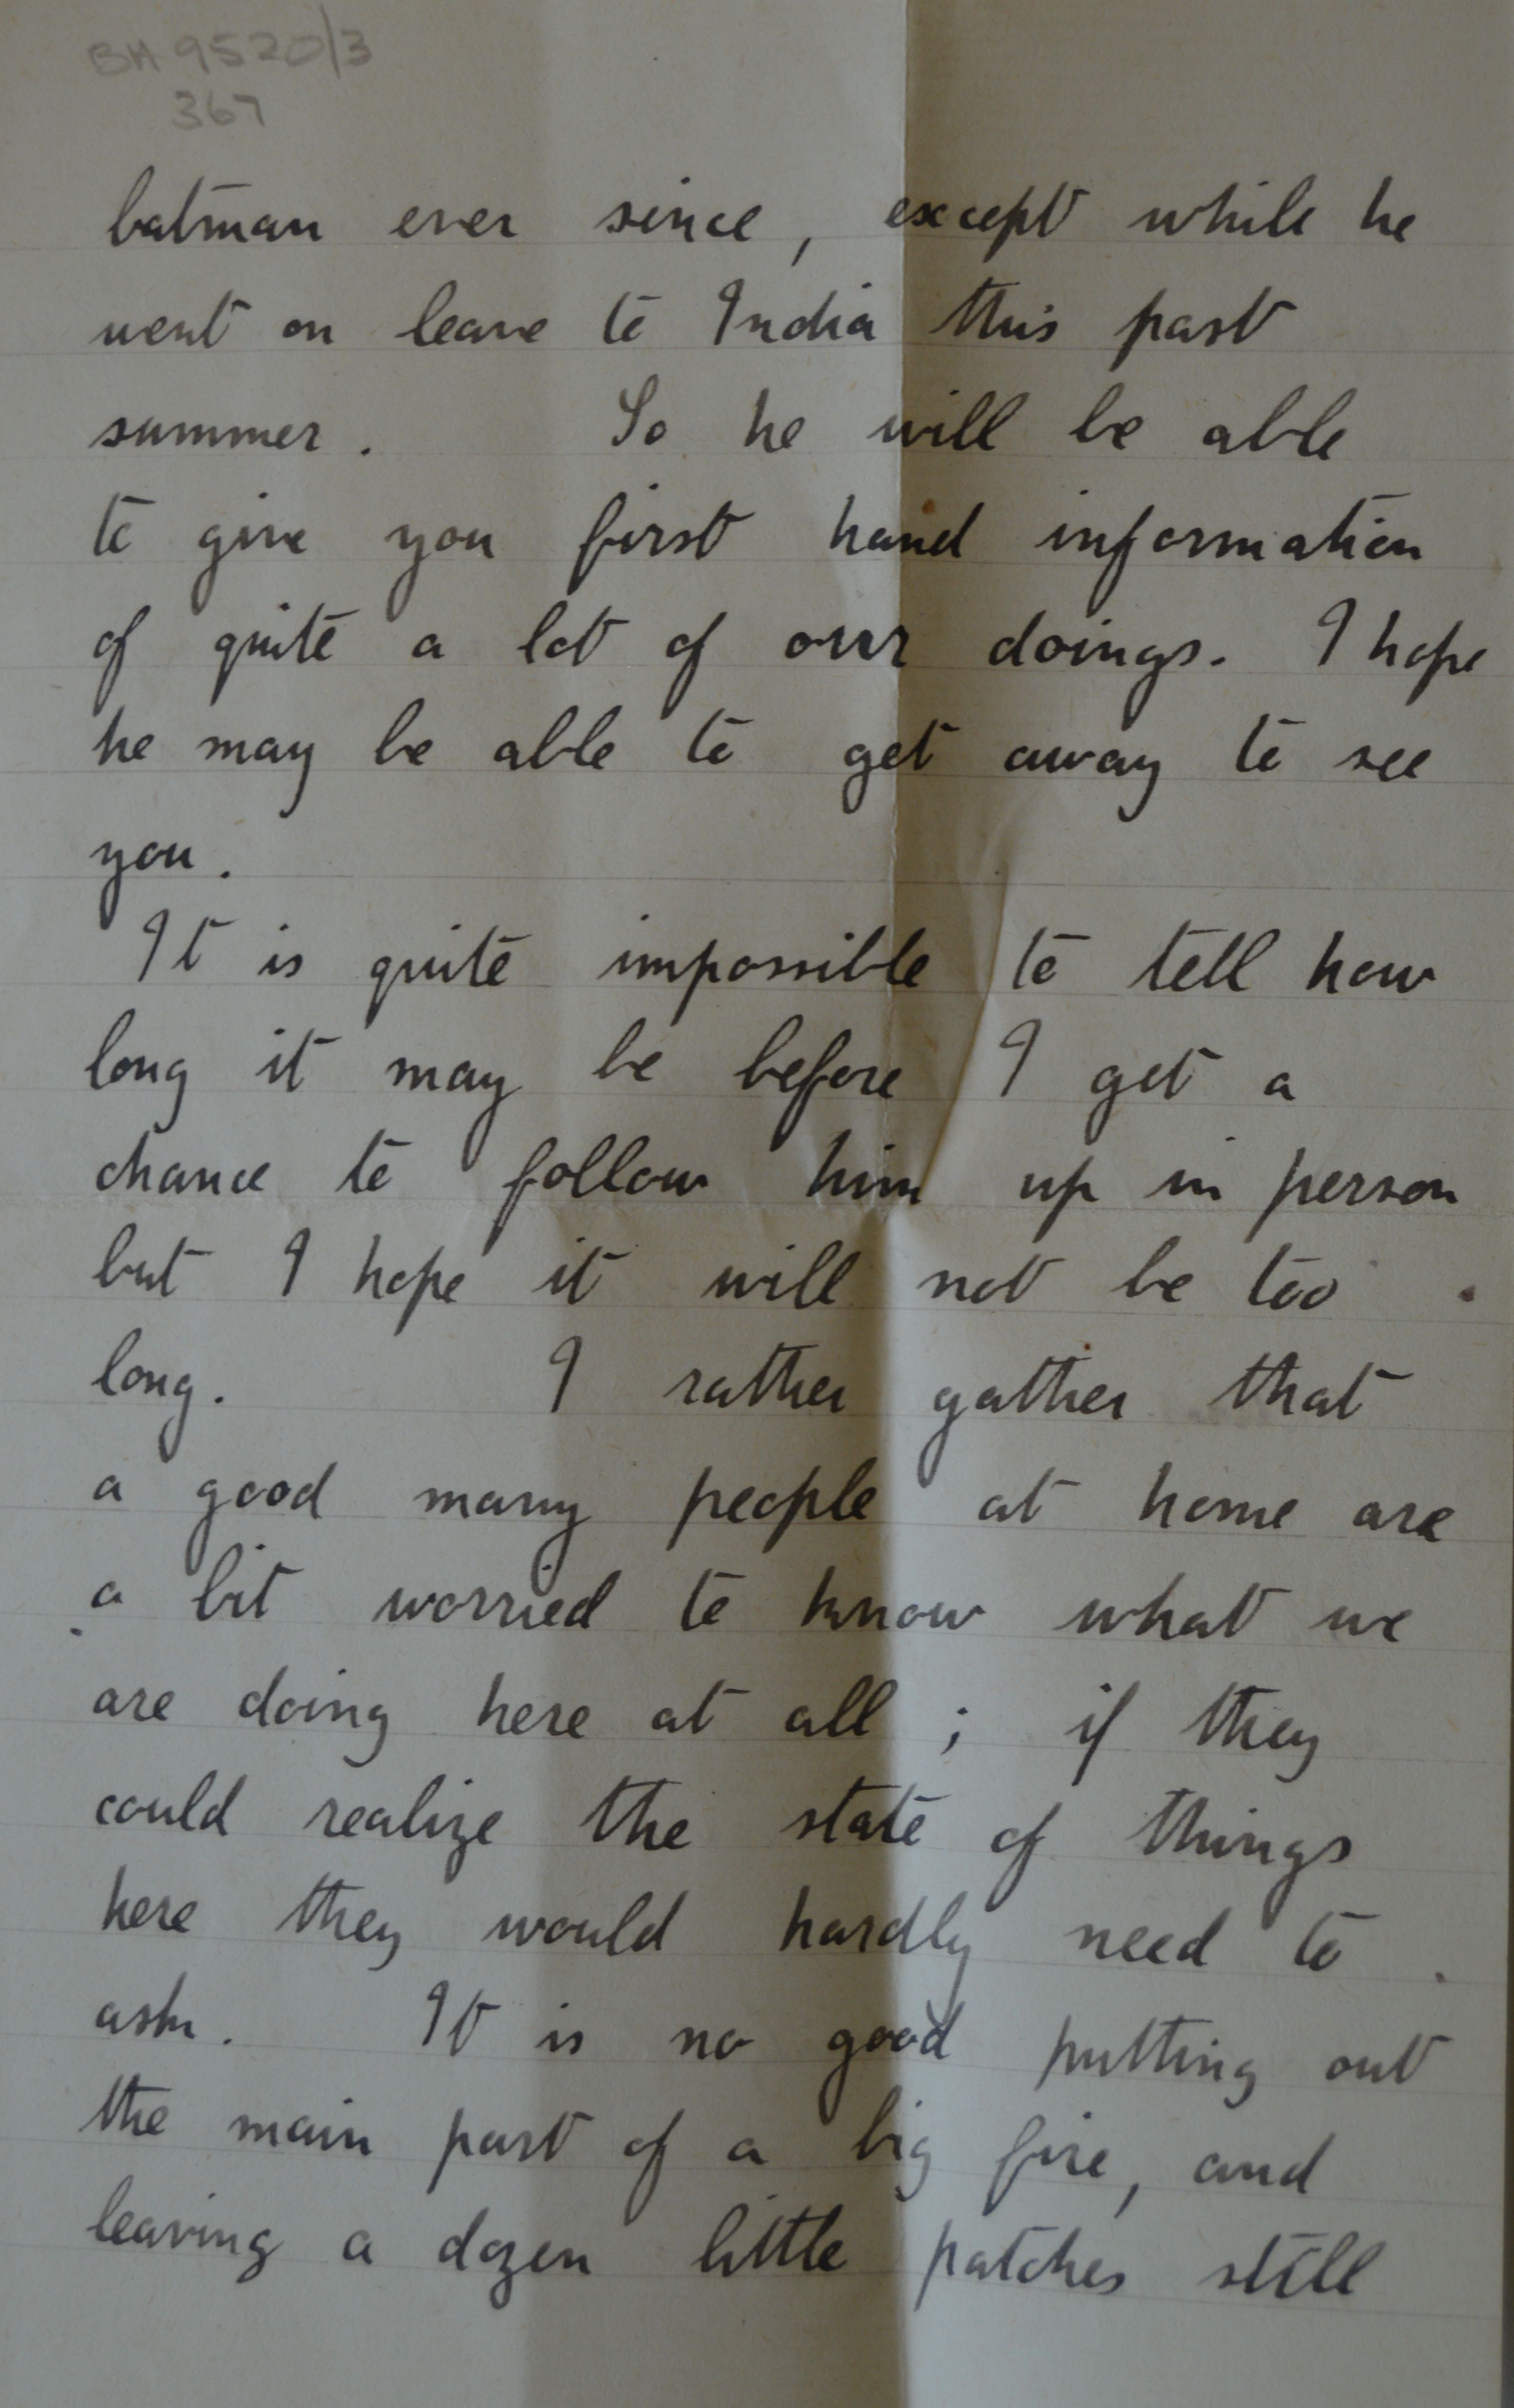 BH 9520/3
367
batman ever since, except while he
went on leave to India this past
summer. So he will be able
to give you first hand information
of quite a lot of our doings. I hope
he may be able to get away to see
you.
It is quite impossible to tell how
long it may be before I get a
chance to follow him up in person
but I hope it will not be too
long. I rather gather that
a good many people at home are
a bit worried to know what we
are doing here at all; if they
could realize the state of things
here they would hardly need to
ask. It is no good putting out
the main part of a big fire, and
leaving a dozen little patches still